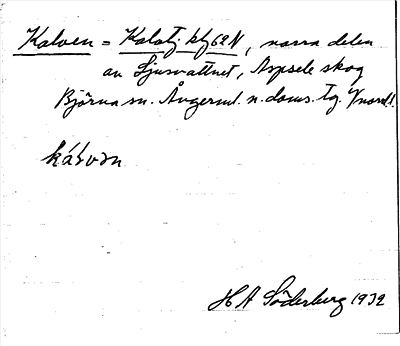 Kalven = Kalatj. kbf 62 N, norra delen
av Ljusvattnet, Aspsele skog
Björna sn. Ångerml. n. doms. tg. V
kálvən
H A Söderberg 1932